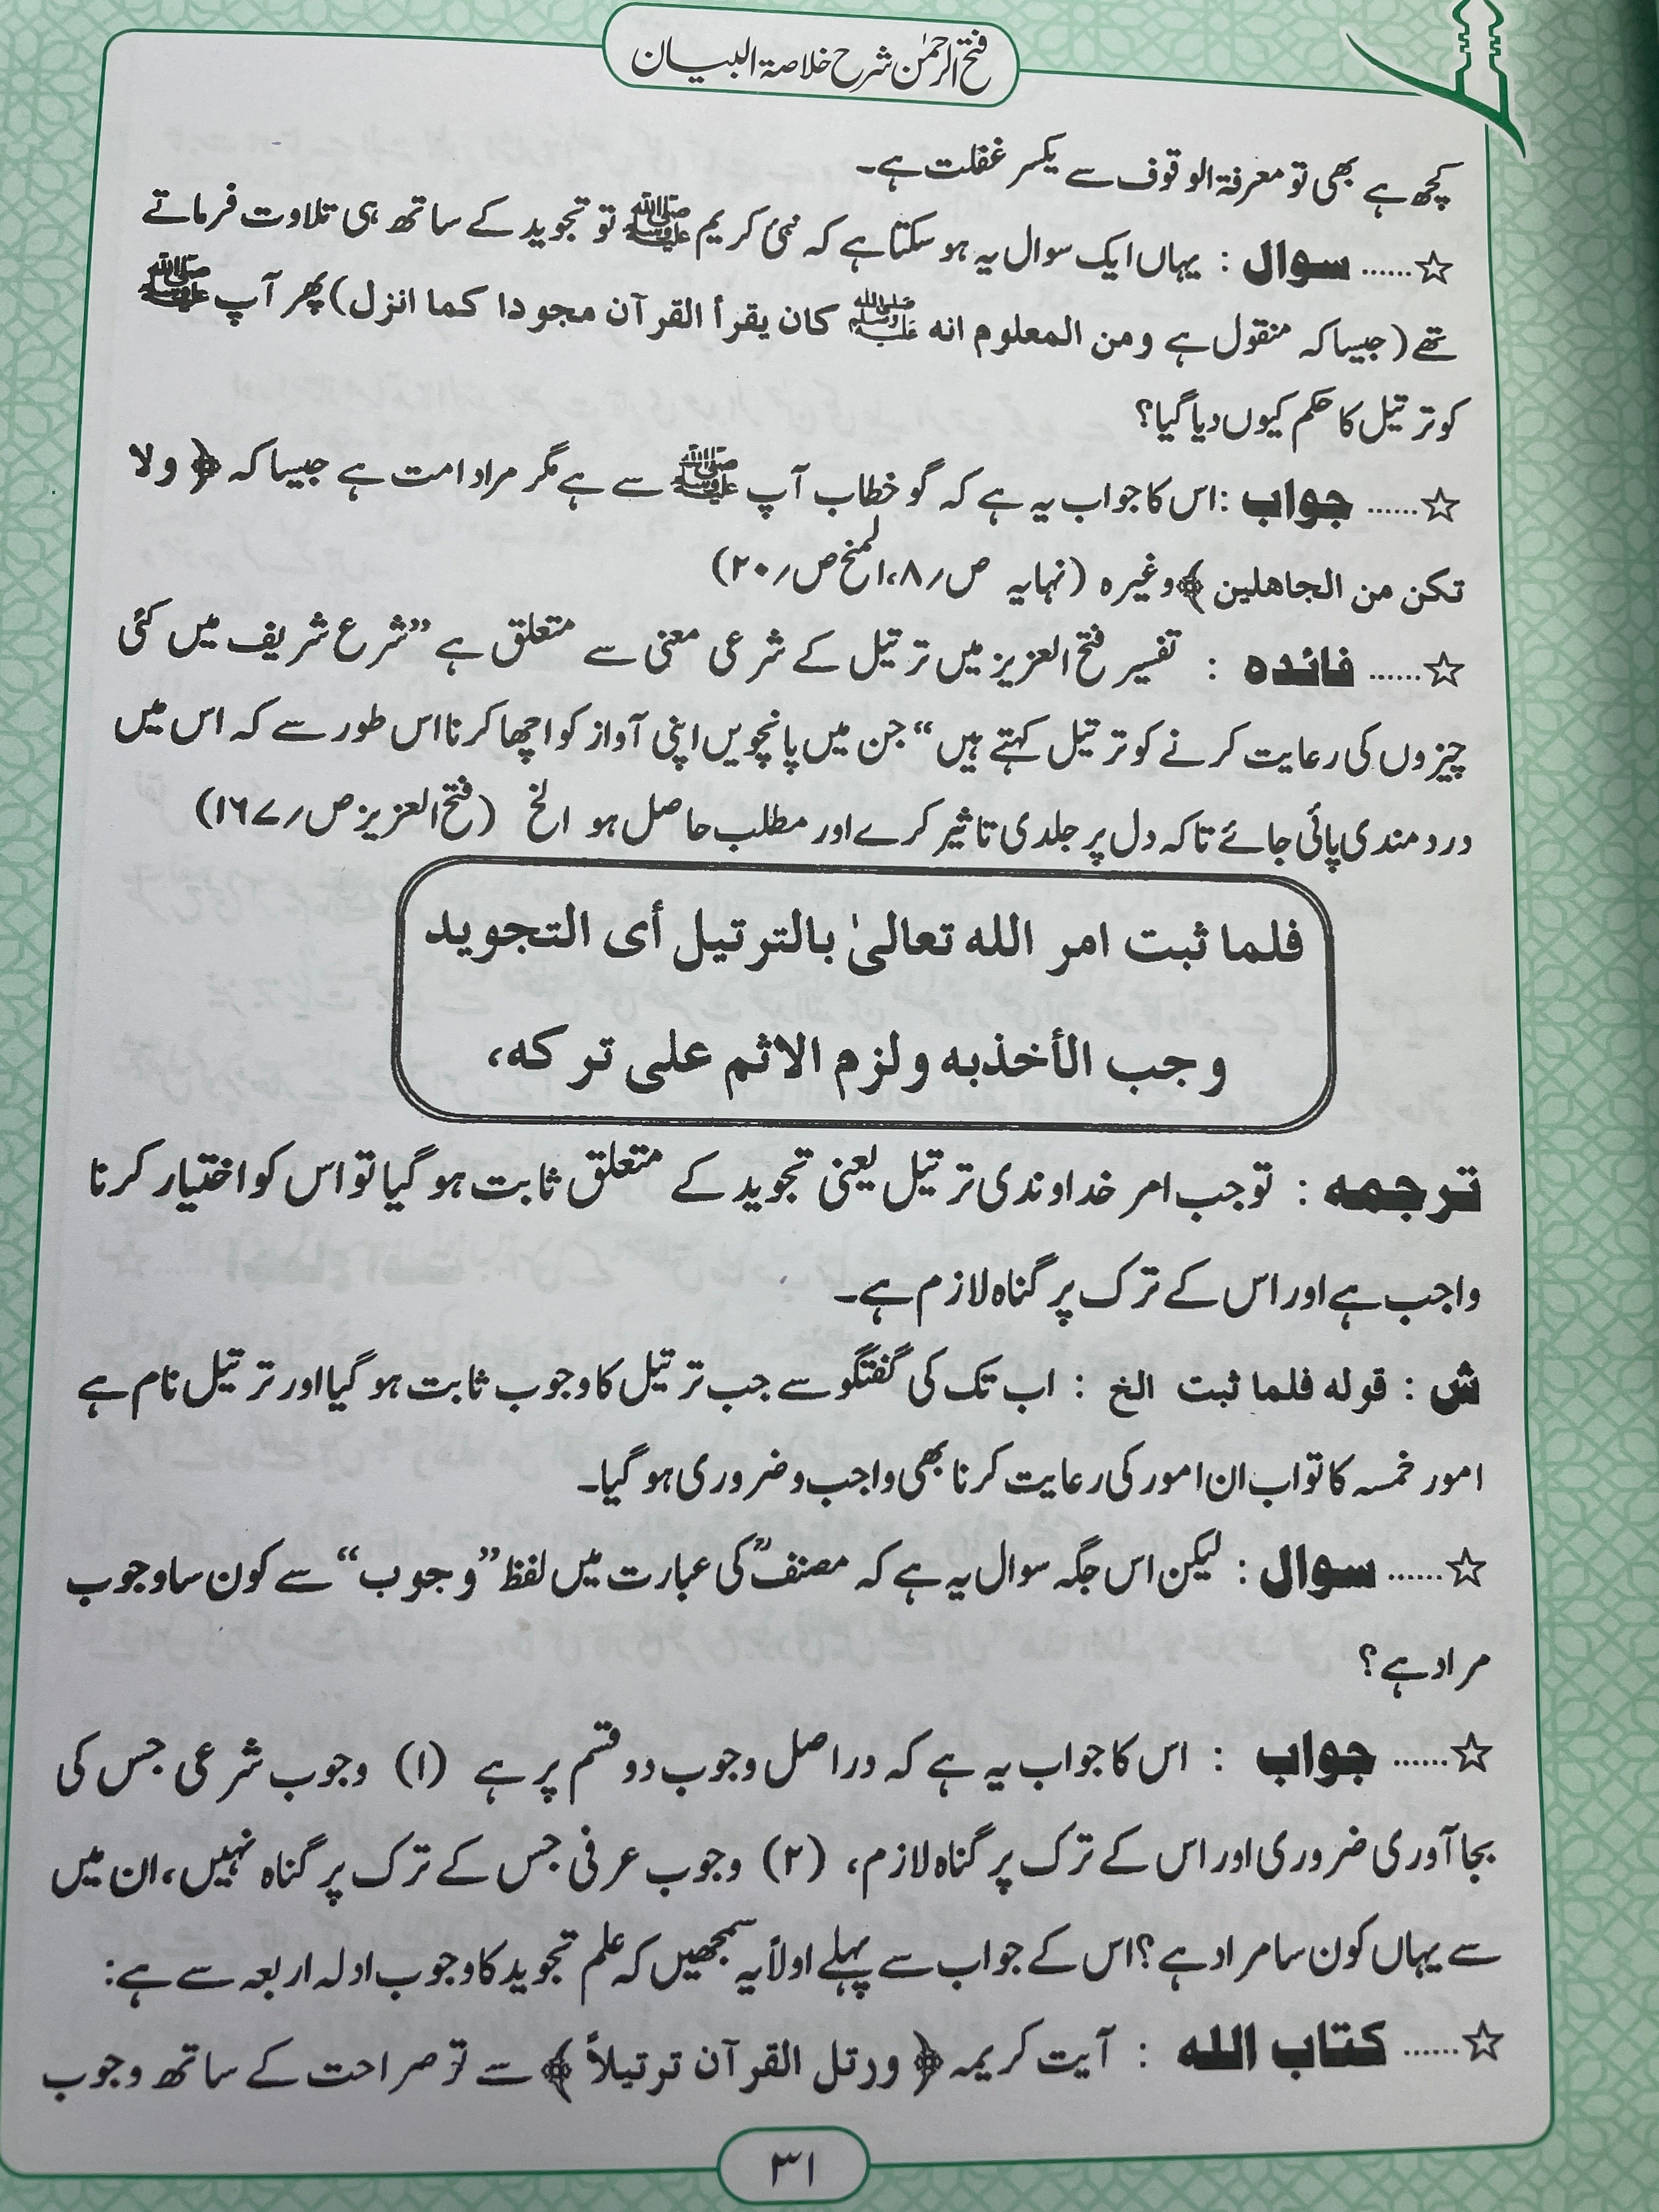 فتح الرحمٰن شرح خلاصۃ البیان
کچھ ہے بھی تو معرفۃ الوقوف سے یکسر غفلت ہے۔
☆...... سوال : یہاں ایک سوال یہ ہو سکتا ہے کہ نبی کریم ﷺ تو تجوید کے ساتھ ہی تلاوت فرماتے
تھے (جیسا کہ منقول ہے ومن المعلوم انه ﷺ كان يقرأ القرآن مجودا كما انزل) پھر آپ ﷺ
کو ترتیل کا حکم کیوں دیا گیا؟
☆...... جواب : اس کا جواب یہ ہے کہ گو خطاب آپ ﷺ سے ہے مگر مراد امت ہے جیسا کہ ﴿ ولا
تكن من الجاهلين ﴾ وغیرہ (نہایہ ص؍۸، المنح ص؍۲۰)
☆...... فائدہ : تفسیر فتح العزیز میں ترتیل کے شرعی معنی سے متعلق ہے ”شرع شریف میں کئی
چیزوں کی رعایت کرنے کو ترتیل کہتے ہیں“ جن میں پانچویں اپنی آواز کو اچھا کرنا اس طور سے کہ اس میں
درد مندی پائی جائے تاکہ دل پر جلدی تاثیر کرے اور مطلب حاصل ہو الخ (فتح العزیز ص؍۱۶۷)
فلما ثبت امر الله تعالىٰ بالترتيل أى التجويد
وجب الأخذبه ولزم الاثم على تركه،
ترجمہ : تو جب امر خداوندی ترتیل یعنی تجوید کے متعلق ثابت ہو گیا تو اس کو اختیار کرنا
واجب ہے اور اس کے ترک پر گناہ لازم ہے۔
ش : قوله فلما ثبت الخ : اب تک کی گفتگو سے جب ترتیل کا وجوب ثابت ہو گیا اور ترتیل نام ہے
امور خمسہ کا تو اب ان امور کی رعایت کرنا بھی واجب و ضروری ہو گیا۔
☆...... سوال : لیکن اس جگہ سوال یہ ہے کہ مصنفؒ کی عبارت میں لفظ ”وجوب“ سے کون سا وجوب
مراد ہے؟
☆...... جواب : اس کا جواب یہ ہے کہ دراصل وجوب دو قسم پر ہے (۱) وجوب شرعی جس کی
بجا آوری ضروری اور اس کے ترک پر گناہ لازم، (۲) وجوب عرفی جس کے ترک پر گناہ نہیں، ان میں
سے یہاں کون سا مراد ہے؟ اس کے جواب سے پہلے اولاً یہ سمجھیں کہ علم تجوید کا وجوب ادلہ اربعہ سے ہے:
☆...... کتاب الله : آیت کریمہ ﴿ ورتل القرآن ترتيلاً ﴾ سے تو صراحت کے ساتھ وجوب
۳۱